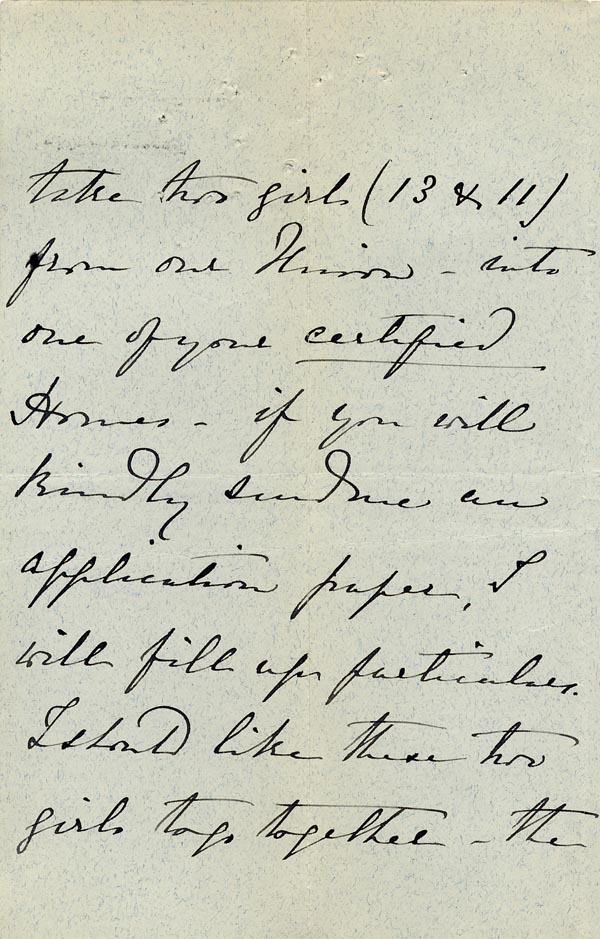 take two girls (13 & 11)
from our Union - into
one of your certified
Homes - if you will
kindly send me an
application paper, I
will fill up particulars.
I should like these two
girls to go together - the